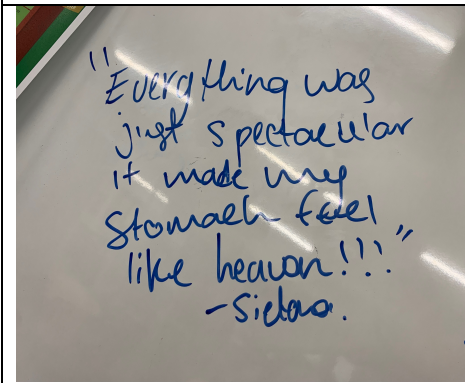 "Everything was
just spectacular
it made my
stomach feel
like heavan!!!"